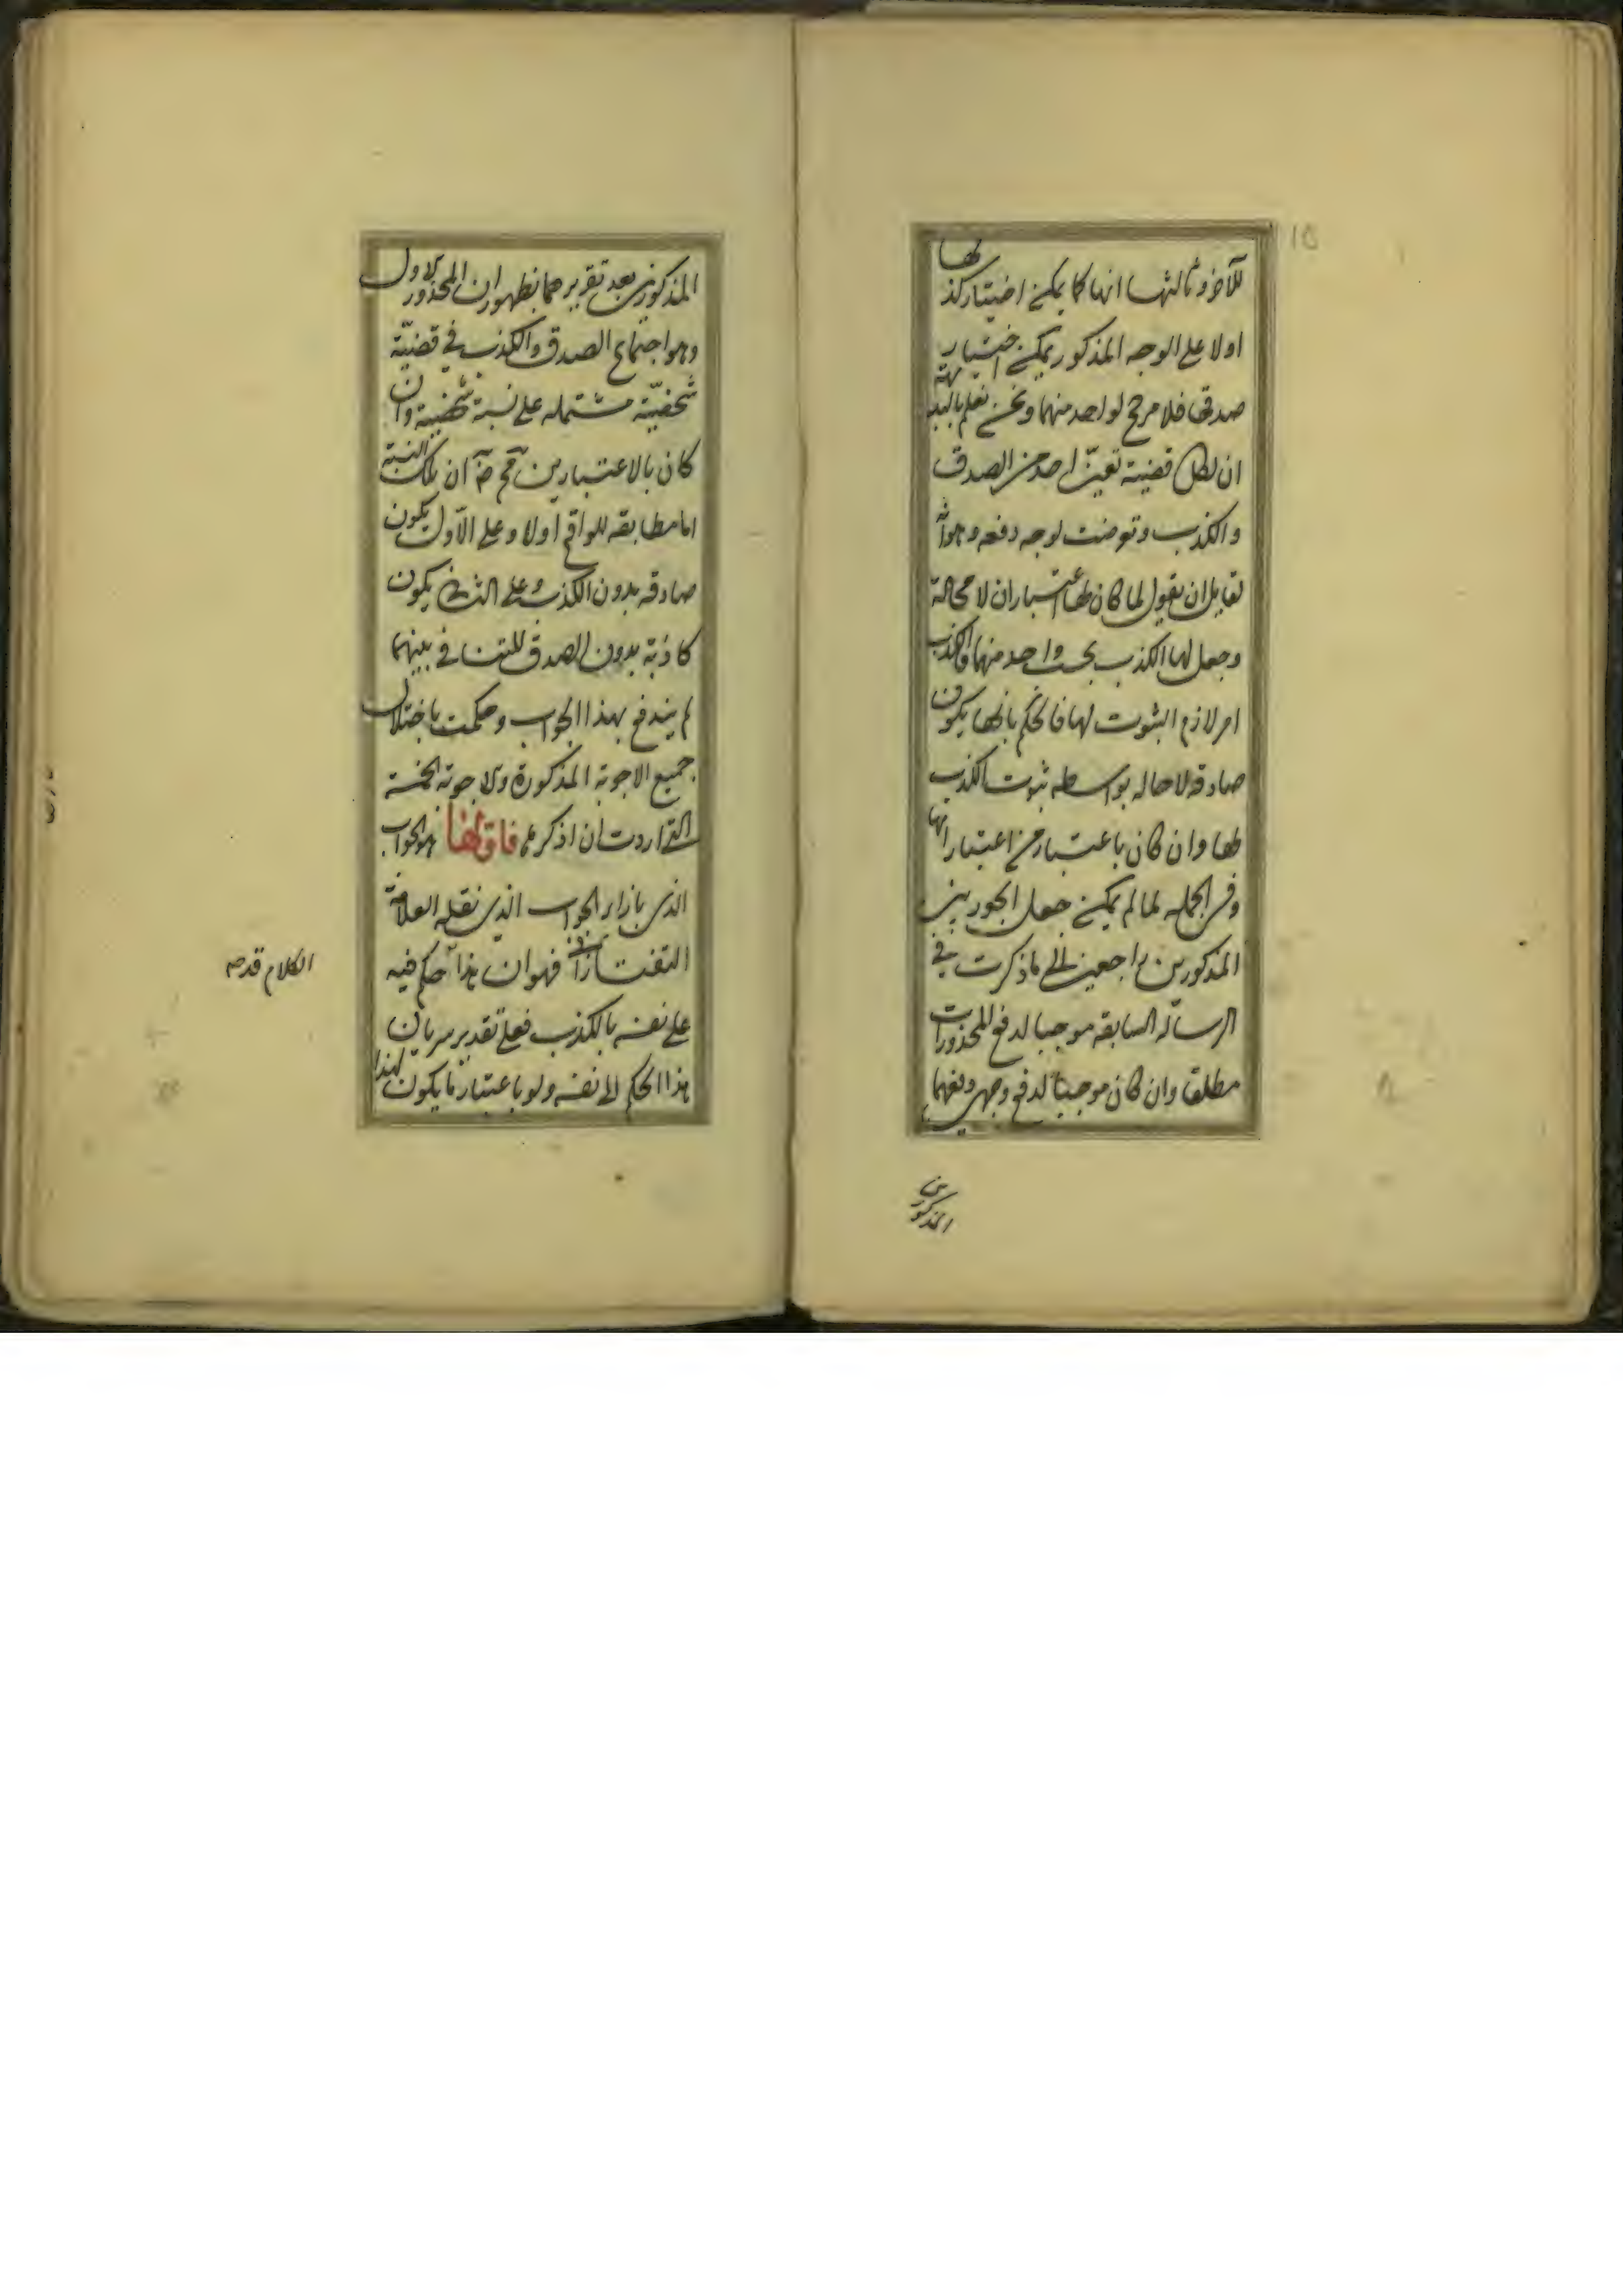 للآخر وثالثها انها كما يمكن اختيار كذبها
اولا على الوجه المذكور يمكن اختيار
صدقها فلا مرجح لواحد منهما ونحن نعلم بالبديهة
ان لكل قضية تعين احد من الصدق
والكذب وتعرضت لوجه دفعه وهو ان
لقايل ان يقول لما كان لها اعتباران لا محالة
وجعل لها الكذب بحسب واحد منهما فالكذب
امر لازم الثبوت لها فالحكم بانها يكون
صادقه لا محاله بواسطه ثبوت الكذب
لها وان كان باعتبار من اعتباراتها
وفى الجمله لما لم يمكن جعل الجوابين
المذكورين راجعين الى ما ذكرت فى
الرسالة السابقه موجبا لدفع المحذورات
مطلقا وان كان موجبا لدفع وجهى دفعهما
المذكورين
المذكورين بعد تقريرهما بظهور ان المحذور الاول
وهو اجتماع الصدق والكذب فى قضيّة
شخصيّة مشتمله على نسبة شخصية وان
كان بالاعتبارين ان تلك النسبة
اما مطابقه للواقع اولا وعلى الاول يكون
صادقه بدون الكذب وعلى الثانى يكون
كاذبة بدون الصدق للتنافى بينهما
لم يندفع بهذا الجواب وحكمت باختلال
جميع الاجوبة المذكورة والاجوبة الخمسة
التى اردت ان اذكرها فاولها هو الجواب
الذى بازاء الجواب الذى نقله العلامة
التفتازانى فهو ان هذا حكم فيه
الكلام قد
على نفسه بالكذب فعلى تقدير سريان
هذا الحكم الى نفسه ولو باعتبار ما يكون لهذا